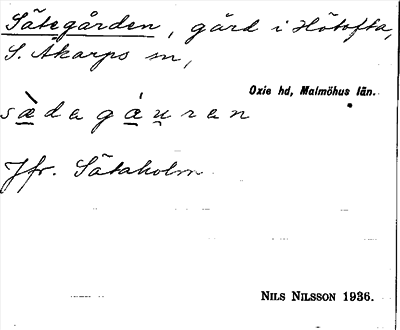 Sätegården, gård i Hötofta,
S. Åkarps sn,
Oxie hd, Malmöhus län.
sæ̀dagáu̯ran
Jfr. Sätaholm
NILS NILSSON 1936.